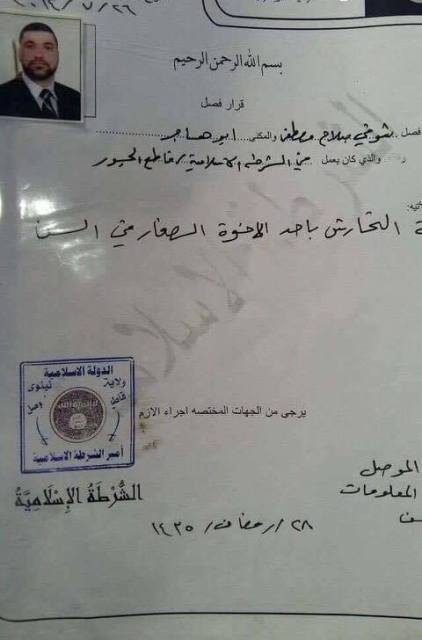 ٢٠١٤/٧/٢٦
بسم الله الرحمن الرحيم
قرار فصل
فصل شوقي صلاح مصطفى والمكنى ابو هاجر
والذي كان يعمل في الشرطة الاسلامية / قاطع الجسور
التحارش باحد الاخوة الصغار في السن
يرجى من الجهات المختصه اجراء الازم
الدولة الاسلامية
ولاية نينوى
قاطع
أمير الشرطة الاسلامية
الشُّرْطَةُ الإِسْلَامِيَّةُ
الموصل
المعلومات
٢٨/رمضان/١٤٣٥